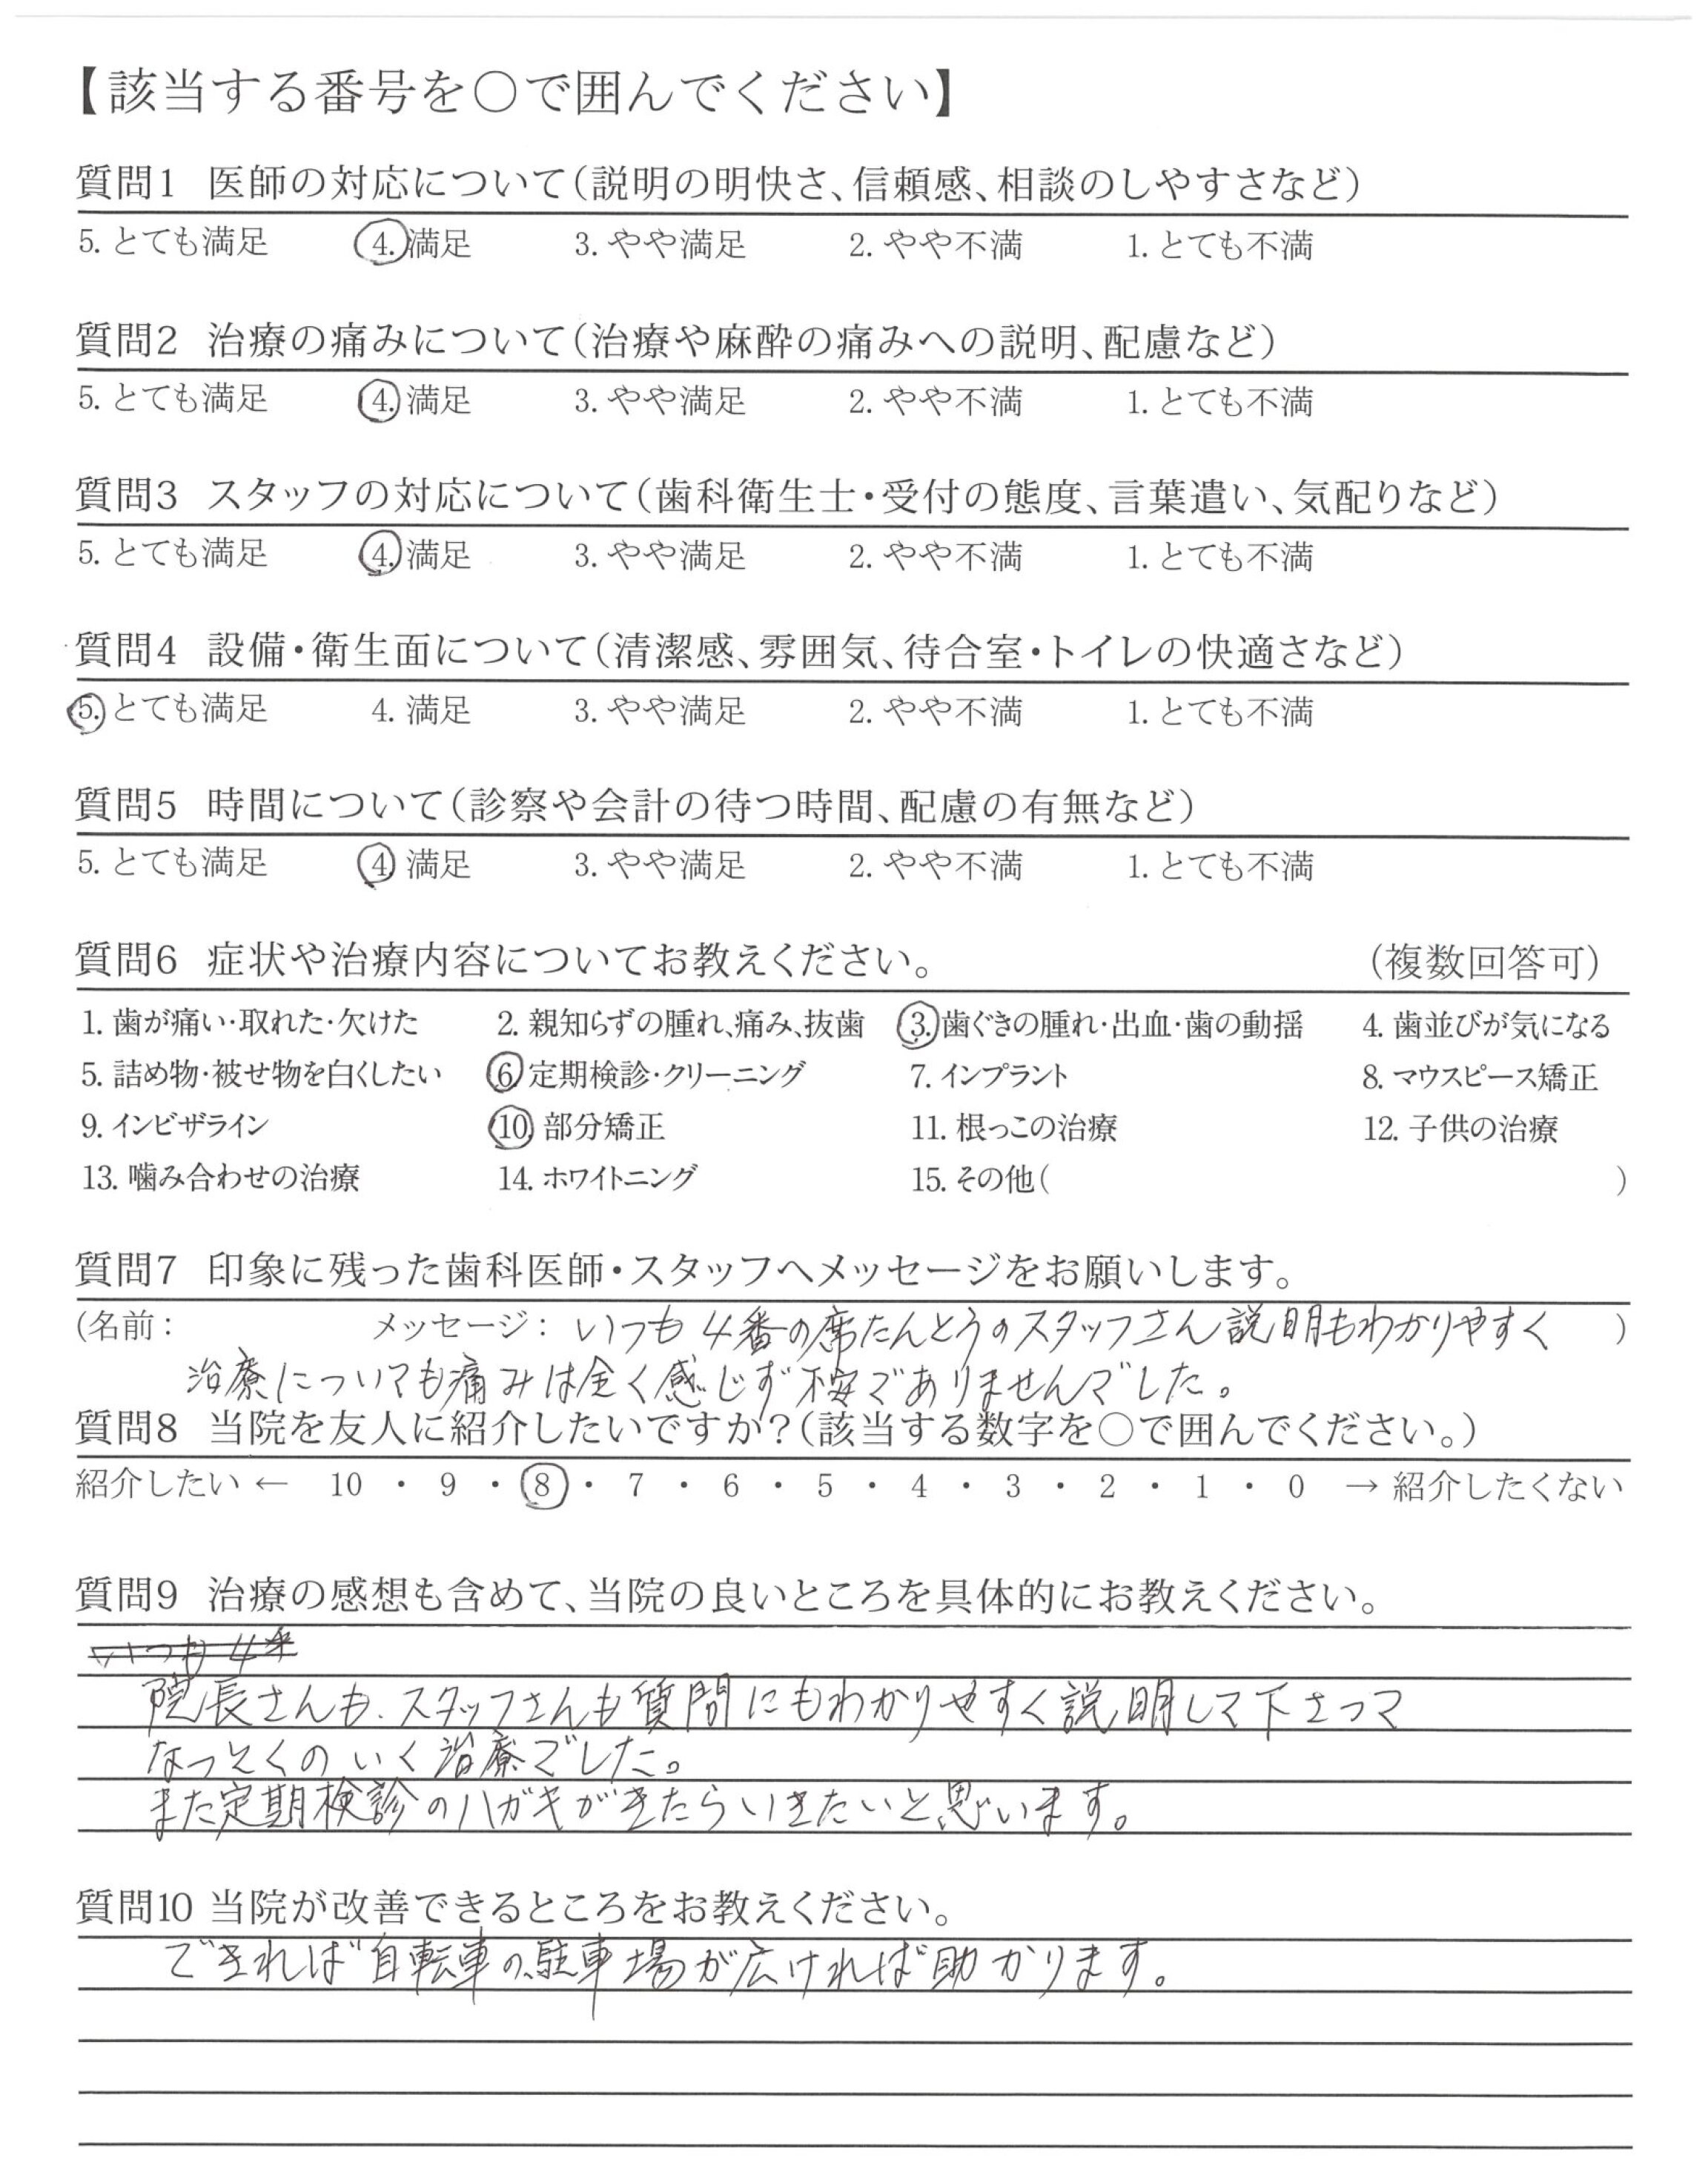 【該当する番号を○で囲んでください】
質問1 医師の対応について(説明の明快さ、信頼感、相談のしやすさなど)
5. とても満足 4. 満足 3. やや満足 2. やや不満 1. とても不満
質問2 治療の痛みについて(治療や麻酔の痛みへの説明、配慮など)
5. とても満足 4. 満足 3. やや満足 2. やや不満 1. とても不満
質問3 スタッフの対応について(歯科衛生士・受付の態度、言葉遣い、気配りなど)
5. とても満足 4. 満足 3. やや満足 2. やや不満 1. とても不満
質問4 設備・衛生面について(清潔感、雰囲気、待合室・トイレの快適さなど)
5. とても満足 4. 満足 3. やや満足 2. やや不満 1. とても不満
質問5 時間について(診察や会計の待つ時間、配慮の有無など)
5. とても満足 4. 満足 3. やや満足 2. やや不満 1. とても不満
質問6 症状や治療内容についてお教えください。 (複数回答可)
1. 歯が痛い・取れた・欠けた 2. 親知らずの腫れ、痛み、抜歯 3. 歯ぐきの腫れ・出血・歯の動揺 4. 歯並びが気になる
5. 詰め物・被せ物を白くしたい 6. 定期検診・クリーニング 7. インプラント 8. マウスピース矯正
9. インビザライン 10. 部分矯正 11. 根っこの治療 12. 子供の治療
13. 噛み合わせの治療 14. ホワイトニング 15. その他( )
質問7 印象に残った歯科医師・スタッフへメッセージをお願いします。
(名前: メッセージ: いつも4番の席たんとうのスタッフさん説明もわかりやすく )
治療についても痛みは全く感じず不安でありませんでした。
質問8 当院を友人に紹介したいですか?(該当する数字を○で囲んでください。)
紹介したい ← 10 ・ 9 ・ 8 ・ 7 ・ 6 ・ 5 ・ 4 ・ 3 ・ 2 ・ 1 ・ 0 → 紹介したくない
質問9 治療の感想も含めて、当院の良いところを具体的にお教えください。
いつも4
院長さんも、スタッフさんも質問にもわかりやすく説明して下さって
なっとくのいく治療でした。
また定期検診のハガキがきたらいきたいと思います。
質問10 当院が改善できるところをお教えください。
できれば自転車の駐車場が広ければ助かります。